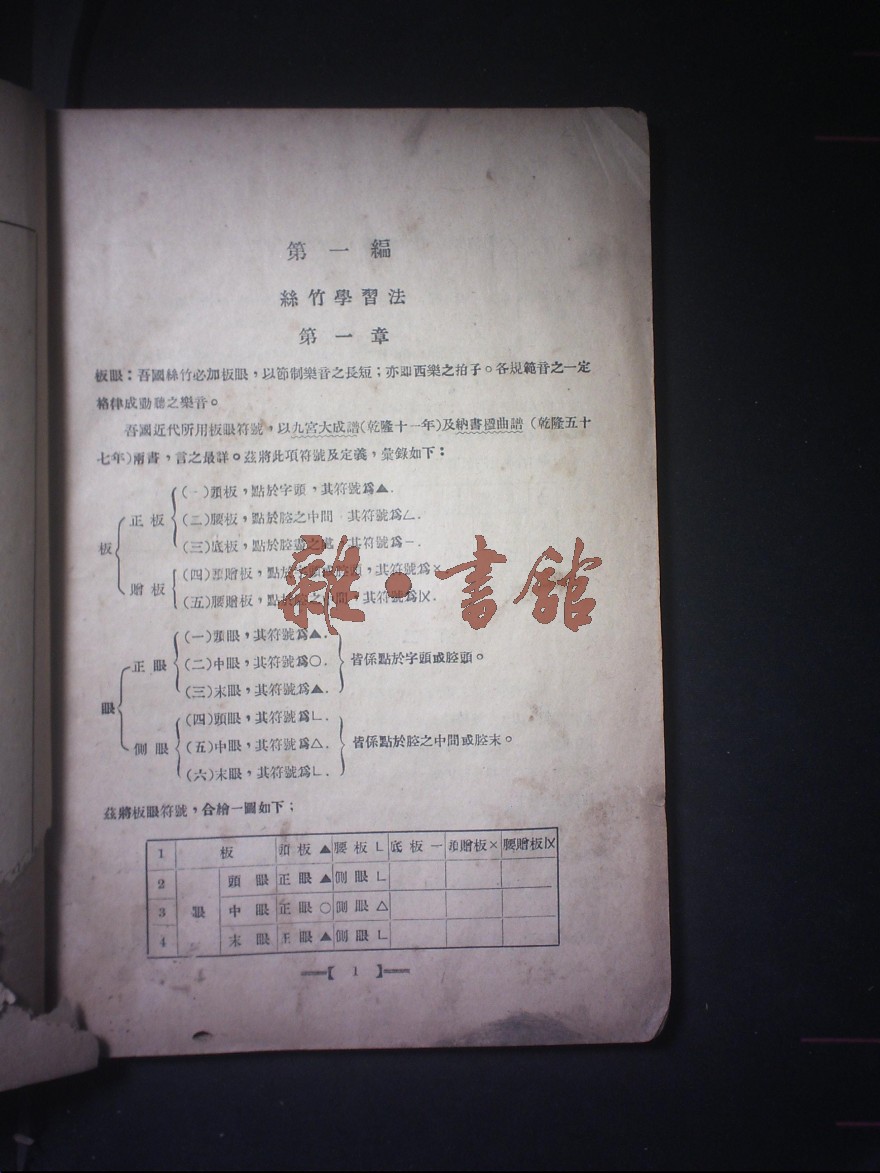 第一編
絲竹學習法
第一章
板眼：吾國絲竹必加板眼，以節制樂音之長短；亦即西樂之拍子。各規範音之一定
格律成動聽之樂音。
吾國近代所用板眼符號，以九宮大成譜(乾隆十一年)及納書楹曲譜（乾隆五十
七年)兩書，言之最詳。茲將此項符號及定義，彙錄如下：
板
正板
(一)頭板，點於字頭，其符號爲▲.
(二)腰板，點於腔之中間 其符號爲∠.
(三)底板，點於腔盡之處 其符號爲－.
贈板
(四)頭贈板，點於字頭或腔頭，其符號爲×
(五)腰贈板，點於腔之中間，其符號爲I×.
眼
正眼
(一)頭眼，其符號爲▲.
(二)中眼，其符號爲○.
(三)末眼，其符號爲▲.
皆係點於字頭或腔頭。
側眼
(四)頭眼，其符號爲∟.
(五)中眼，其符號爲△.
(六)末眼，其符號爲∟.
皆係點於腔之中間或腔末。
茲將板眼符號，合繪一圖如下；
1 板 頭板▲ 腰板∟ 底板一 頭贈板× 腰贈板I×
2 頭眼 正眼▲ 側眼∟
3 眼 中眼 正眼○ 側眼△
4 末眼 正眼▲ 側眼∟
【 1 】
雜·書館